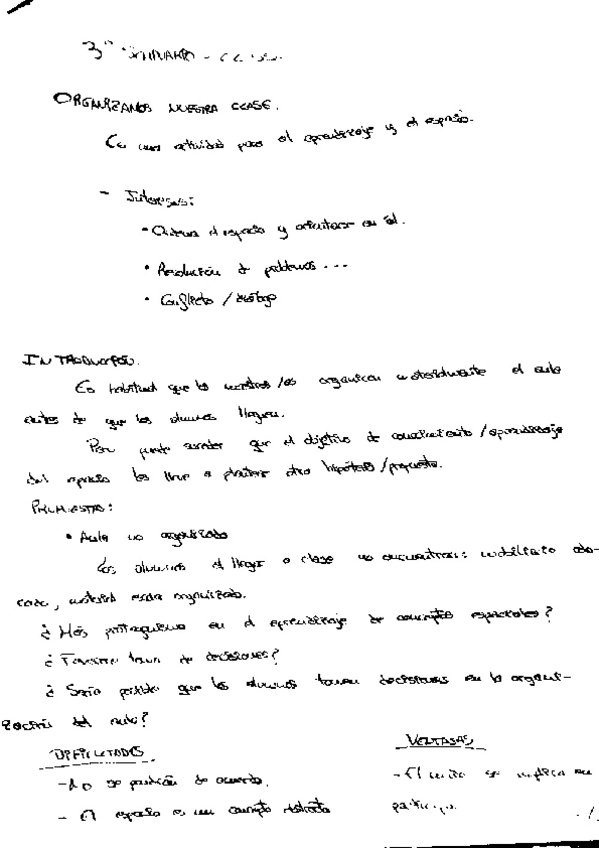 3er SEMINARIO -
ORGANIZAMOS NUESTRA CLASE.
Es una actividad para el aprendizaje y el espacio.
- Intereses:
• Observar el espacio y orientarse en él.
• Resolución de problemas...
• Conflicto / diálogo
INTRODUCCIÓN.
Es habitual que los maestros/as organicen materialmente el aula
antes de que los alumnos lleguen.
Pero puede suceder que el objetivo de conocimiento/aprendizaje
del espacio les lleve a plantear otra hipótesis/propuesta.
PROPUESTAS:
• Aula no organizada
Los alumnos al llegar a clase no encuentran: mobiliario colo-
cado, material escolar organizado.
¿Más protagonismo en el aprendizaje de conceptos espaciales?
¿Favorece toma de decisiones?
¿Sería posible que los alumnos tomen decisiones en la organi-
zación del aula?
DIFICULTADES VENTAJAS
- No se pondrán de acuerdo. - El niño se implica en
- El espacio es un concepto abstracto